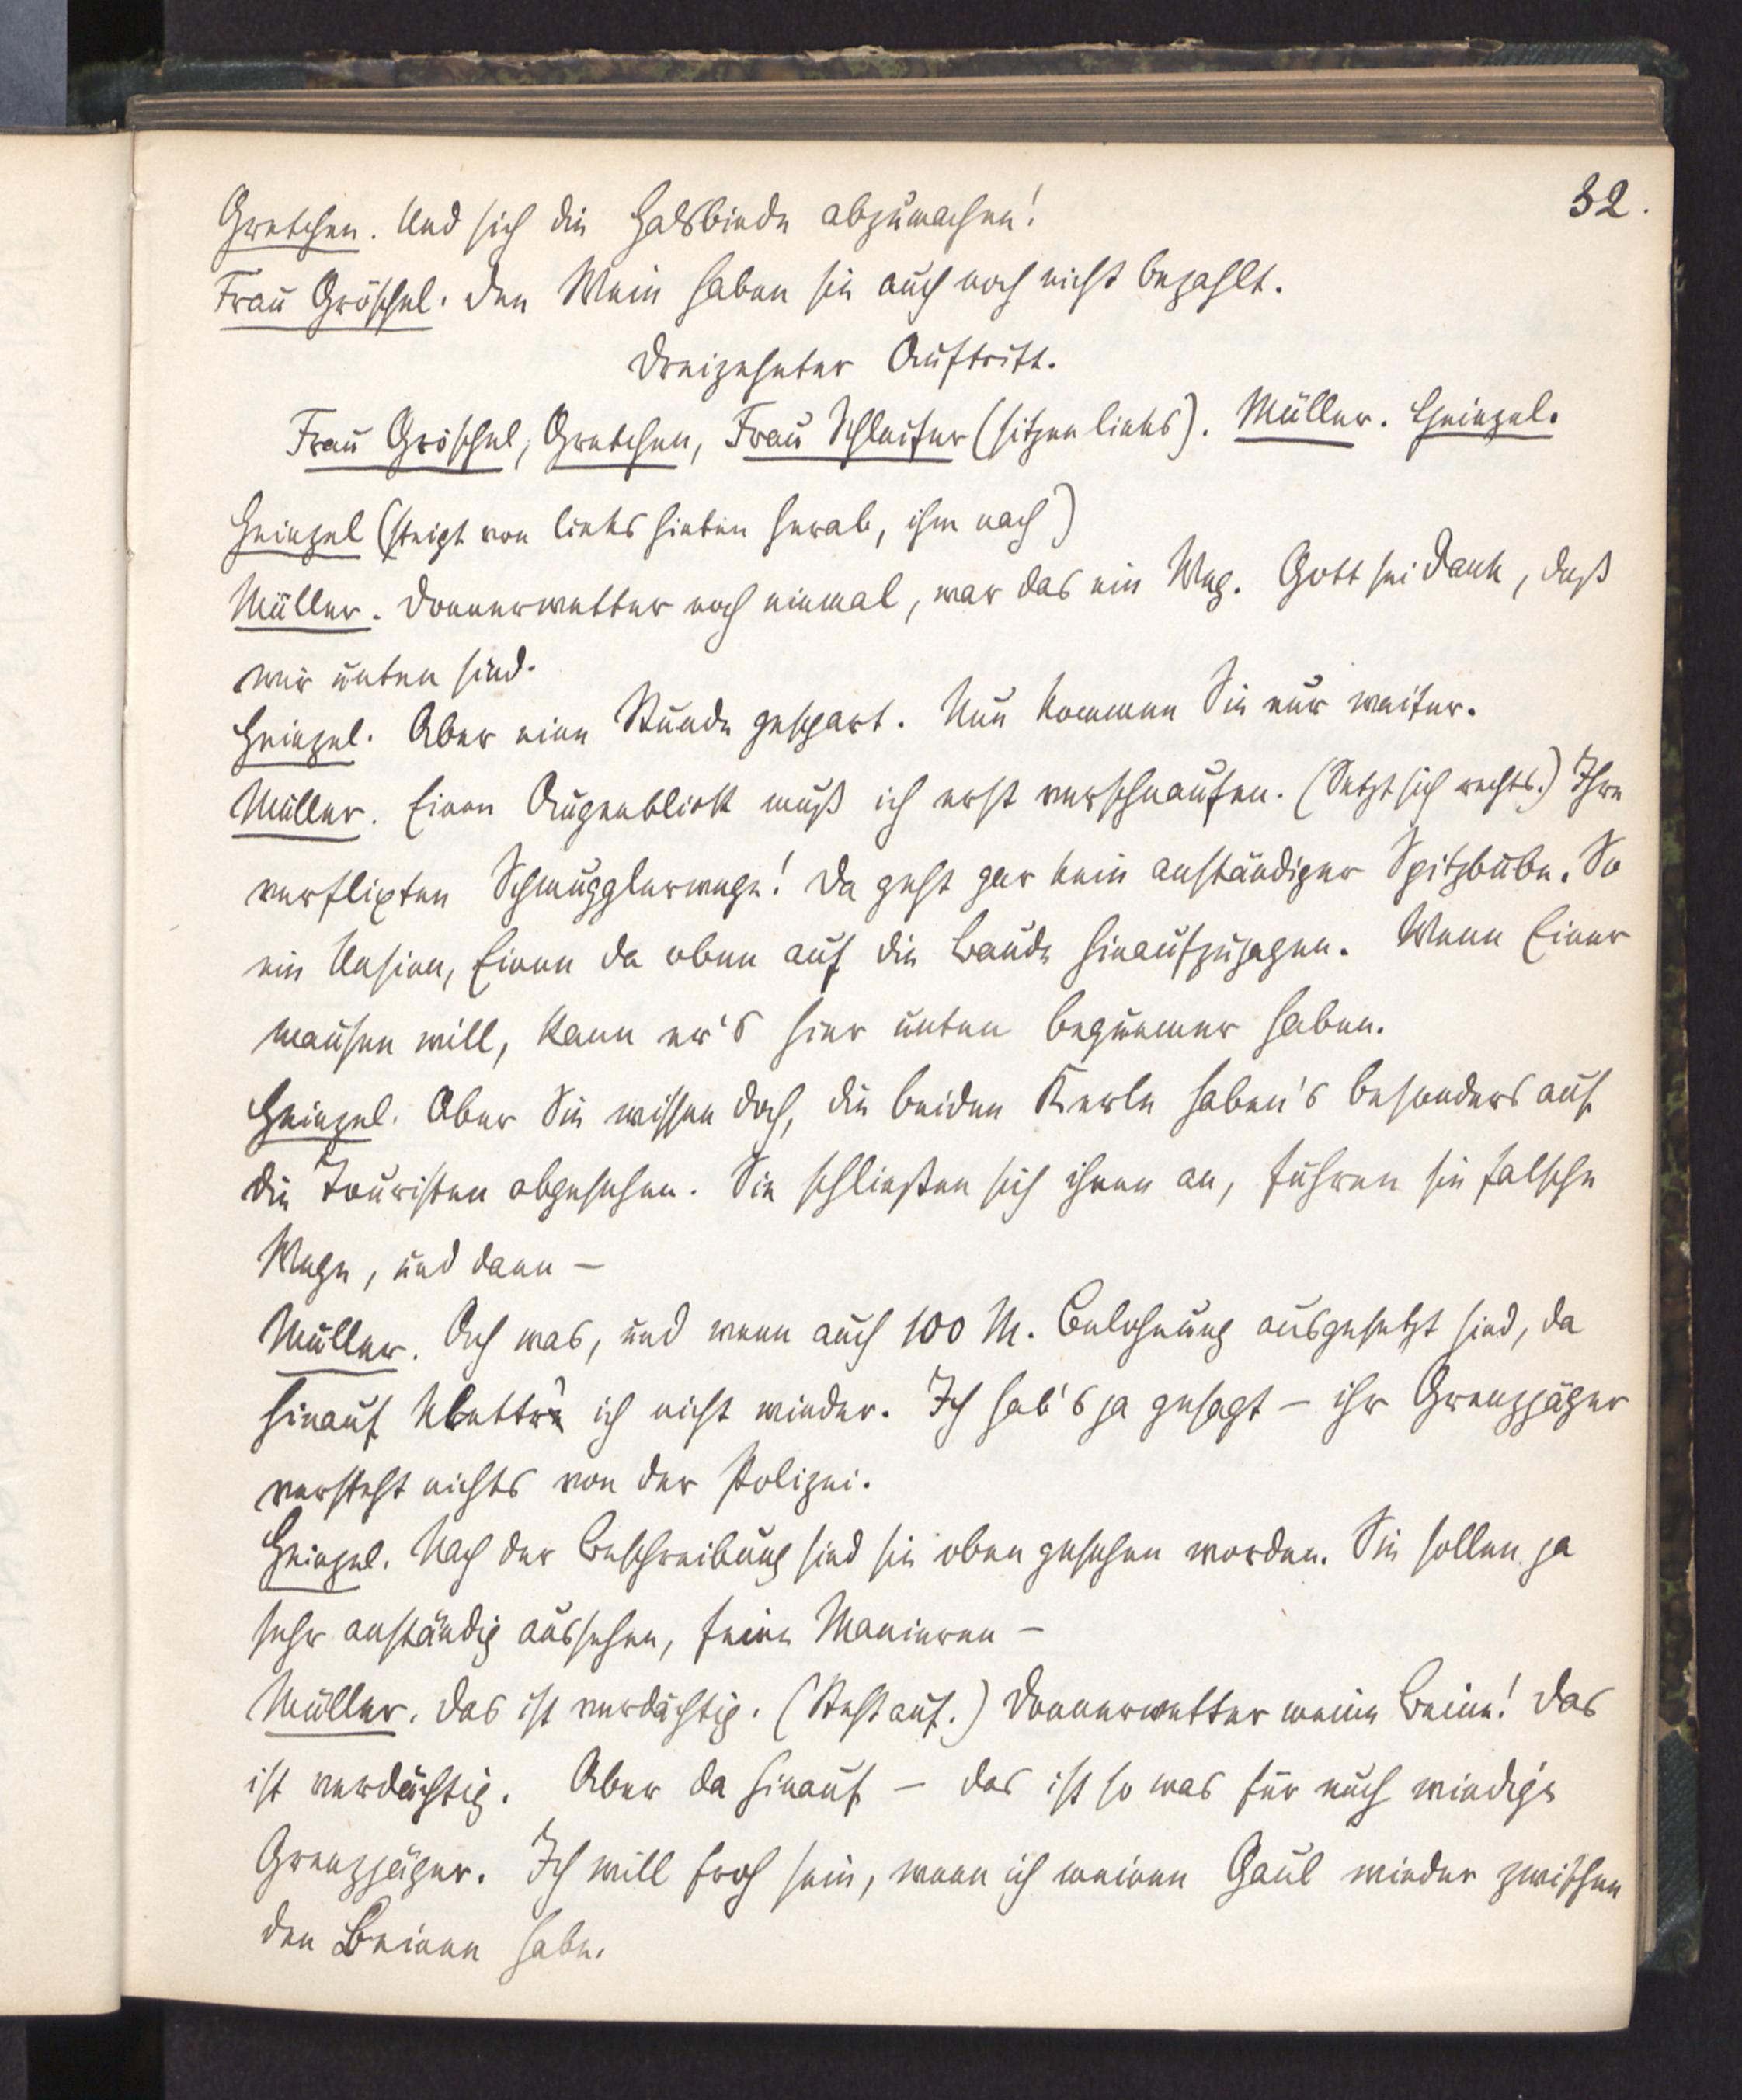 32.
Gretchen. Und sich die Halsbinde abzumachen!
Frau Gröschel. Den Wein haben sie auch noch nicht bezahlt.
Dreizehnter Auftritt.
Frau Gröschel, Gretchen, Frau Schleifer (sitzen links). Müller. Heinzel.
Heinzel (steigt von links hinten herab, ihm nach)
Müller. Donnerwetter noch einmal, war das ein Weg. Gott sei Dank, daß
wir unten sind.
Heinzel. Aber eine Stunde gespart. Nun kommen Sie nur weiter.
Müller. Einen Augenblick muß ich erst verschnaufen. (Setzt sich rechts.) Ihre
verflixten Schmugglerwege! Da geht gar kein anständiger Spitzbube. So
ein Unsinn, Einen da oben auf die Baude hinaufzujagen. Wenn Einer
mausen will, kann er's hier unten bequemer haben.
Heinzel. Aber Sie wissen doch, die beiden Kerle haben's besonders auf
die Touristen abgesehen. Sie schließen sich ihnen an, führen sie falsche
Wege, und dann –
Müller. Ach was, und wenn auch 100 M. Belohnung ausgesetzt sind, da
hinauf klettr' ich nicht wieder. Ich hab's ja gesagt – ihr Grenzjäger
versteht nichts von der Polizei.
Heinzel. Nach der Beschreibung sind sie oben gesehen worden. Sie sollen ja
sehr anständig aussehen, feine Manieren –
Müller. Das ist verdächtig. (Steht auf.) Donnerwetter meine Beine! Das
ist verdächtig. Aber da hinauf – das ist so was für euch windige
Grenzjäger. Ich will froh sein, wenn ich meinen Gaul wieder zwischen
den Beinen habe.